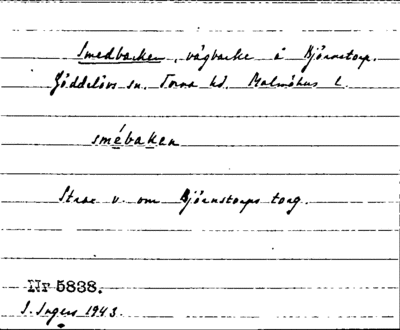 Smedbacken, vägbacke å Björnstorp.
Göddelövs sn. Torna hd. Malmöhus l.
smébakan
Strax v. om Björnstorps torg.
Nr 5838.
I. Ingers 1943.